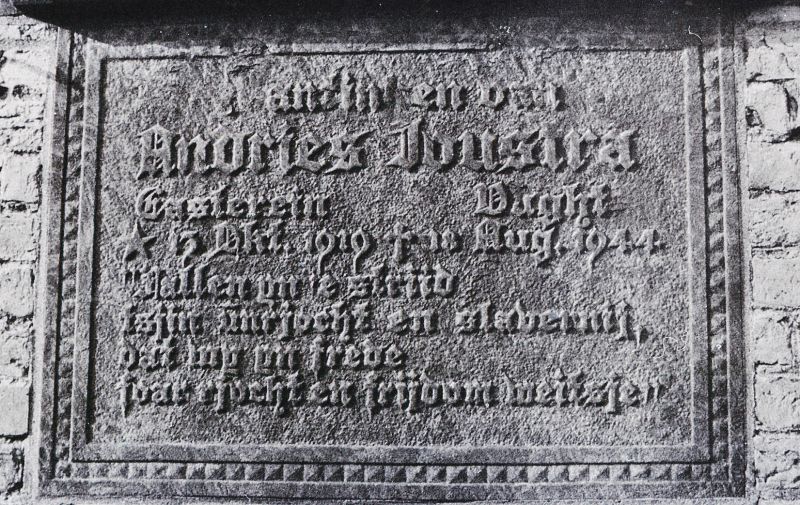 Andries Joustra
Easterein Vught
★ 13 Okt. 1919 ✝ 18 Aug. 1944
"Fallen yn 'e striid
tsjin ûnrjocht en slavernij,
dat wy yn frede
foar rjocht en frijdom weitsje"